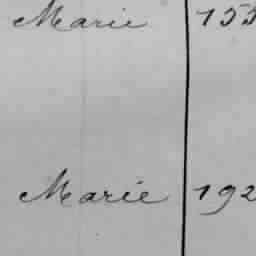 Marie 155
Marie 192